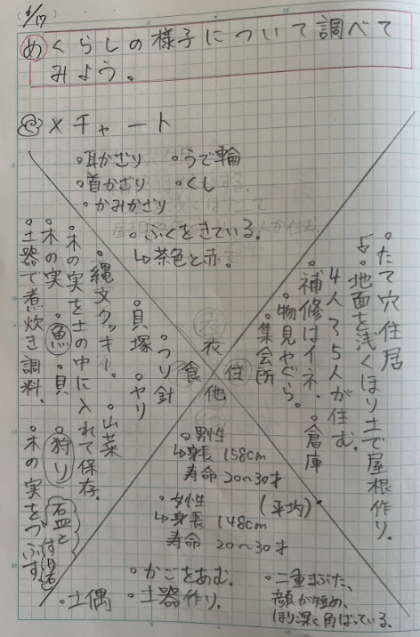 4/17
め くらしの様子について調べて
みよう。
Xチャート
・耳かざり ・うで輪
・首かざり ・くし
・かみかざり
・ふくをきている。
↳茶色と赤。
衣
食
住
他
・たて穴住居
↳地面を浅くほり土で屋根作り。
4人〜5人が住む。
・補修はイネ。・倉庫
・物見やぐら。
・集会所
・つり針
・貝塚 ・ヤリ
・縄文クッキー。・山菜
・木の実を土の中に入れて保存。
・木の実 ・魚 ・貝 ・狩り
・石皿とすり石
・土器で煮炊き調料。・木の実をつぶす
・男性
↳身長 158cm
寿命 20〜30才
・女性 (平均)
↳身長 148cm
寿命 20〜30才
・かごをあむ。
・土偶 ・土器作り。
・二重まぶた、
顔が短め、
ほり深く角ばっている。